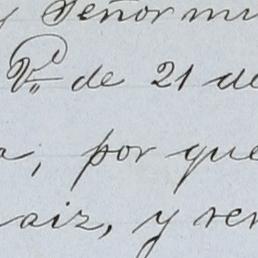 y Señor mu
V. de 21 de
a, por que
aiz, y ren